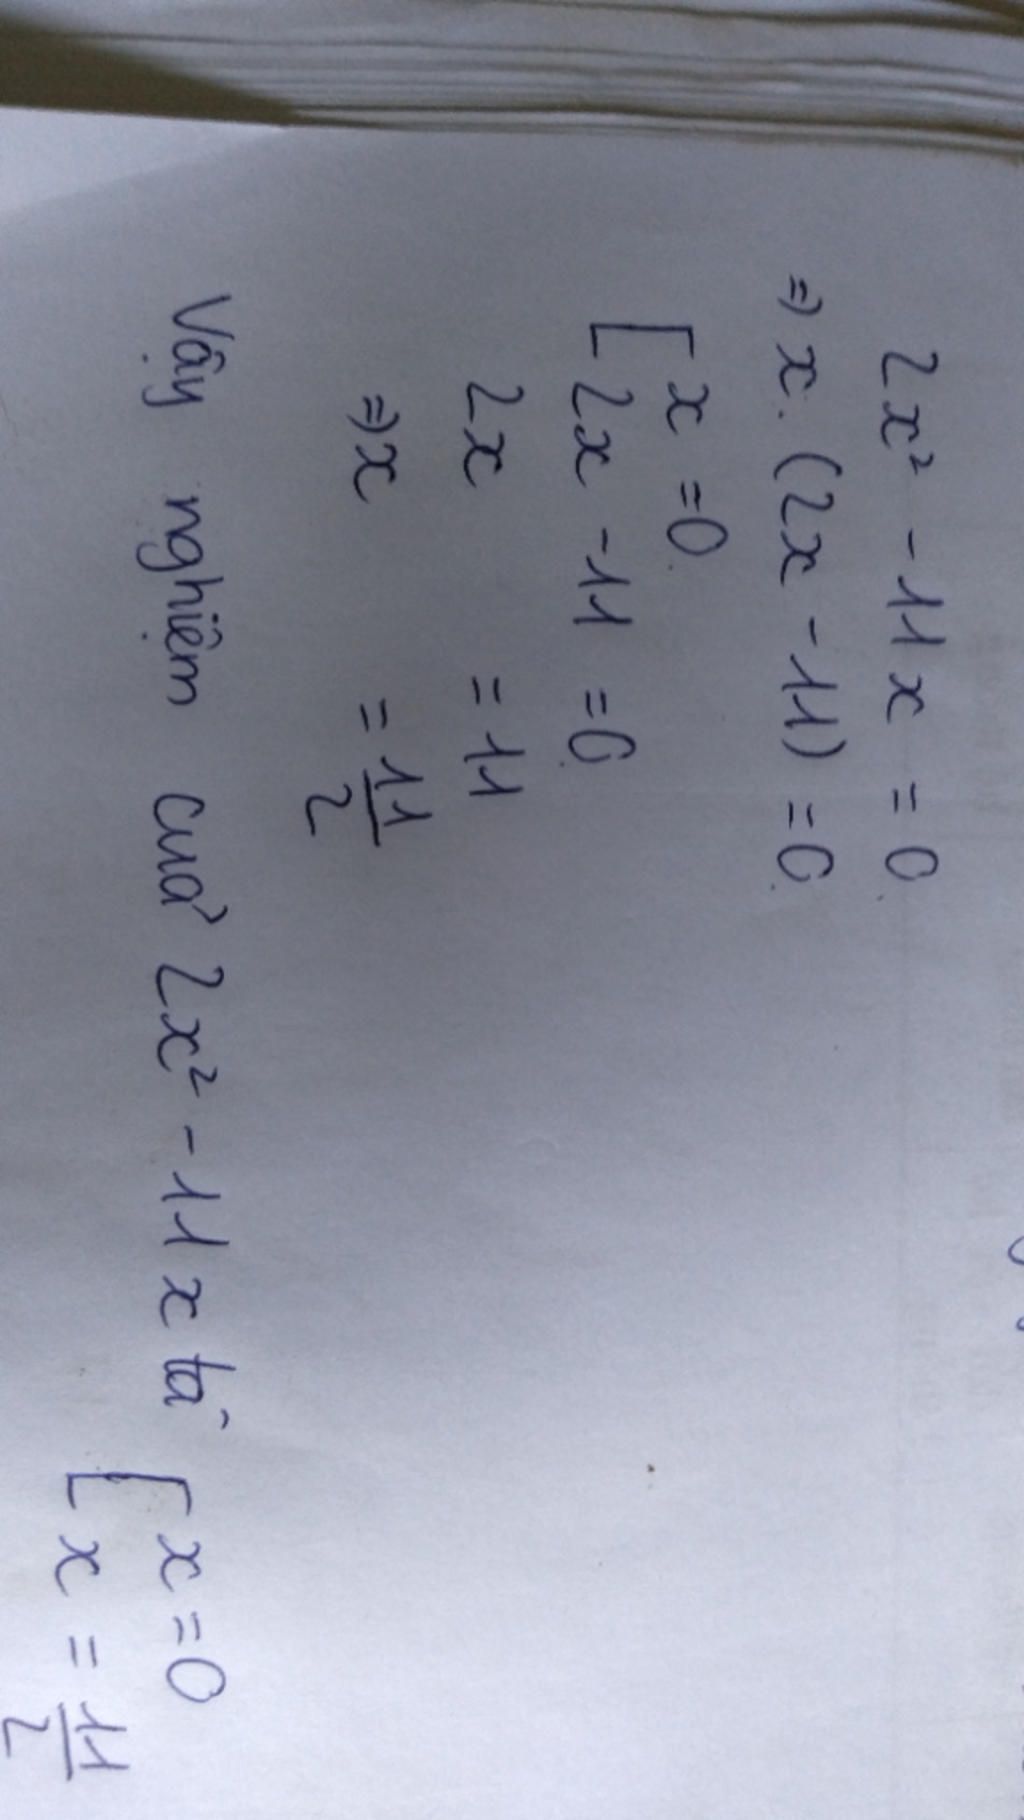 2x² - 11x = 0
⇒ x. (2x - 11) = 0
[ x = 0
[ 2x - 11 = 0
2x = 11
⇒ x = 11/2
Vậy nghiệm của 2x² - 11x là [ x = 0
[ x = 11/2